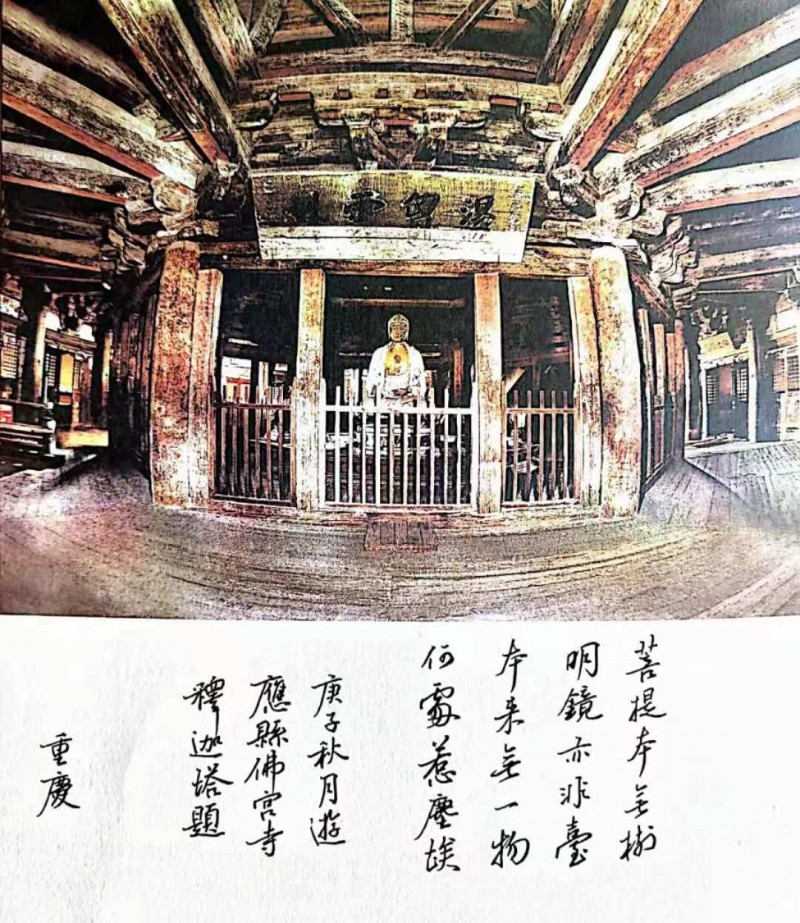 菩提本無樹
明鏡亦非臺
本来無一物
何處惹塵埃
庚子秋月遊
應縣佛宮寺
釋迦塔題
重慶